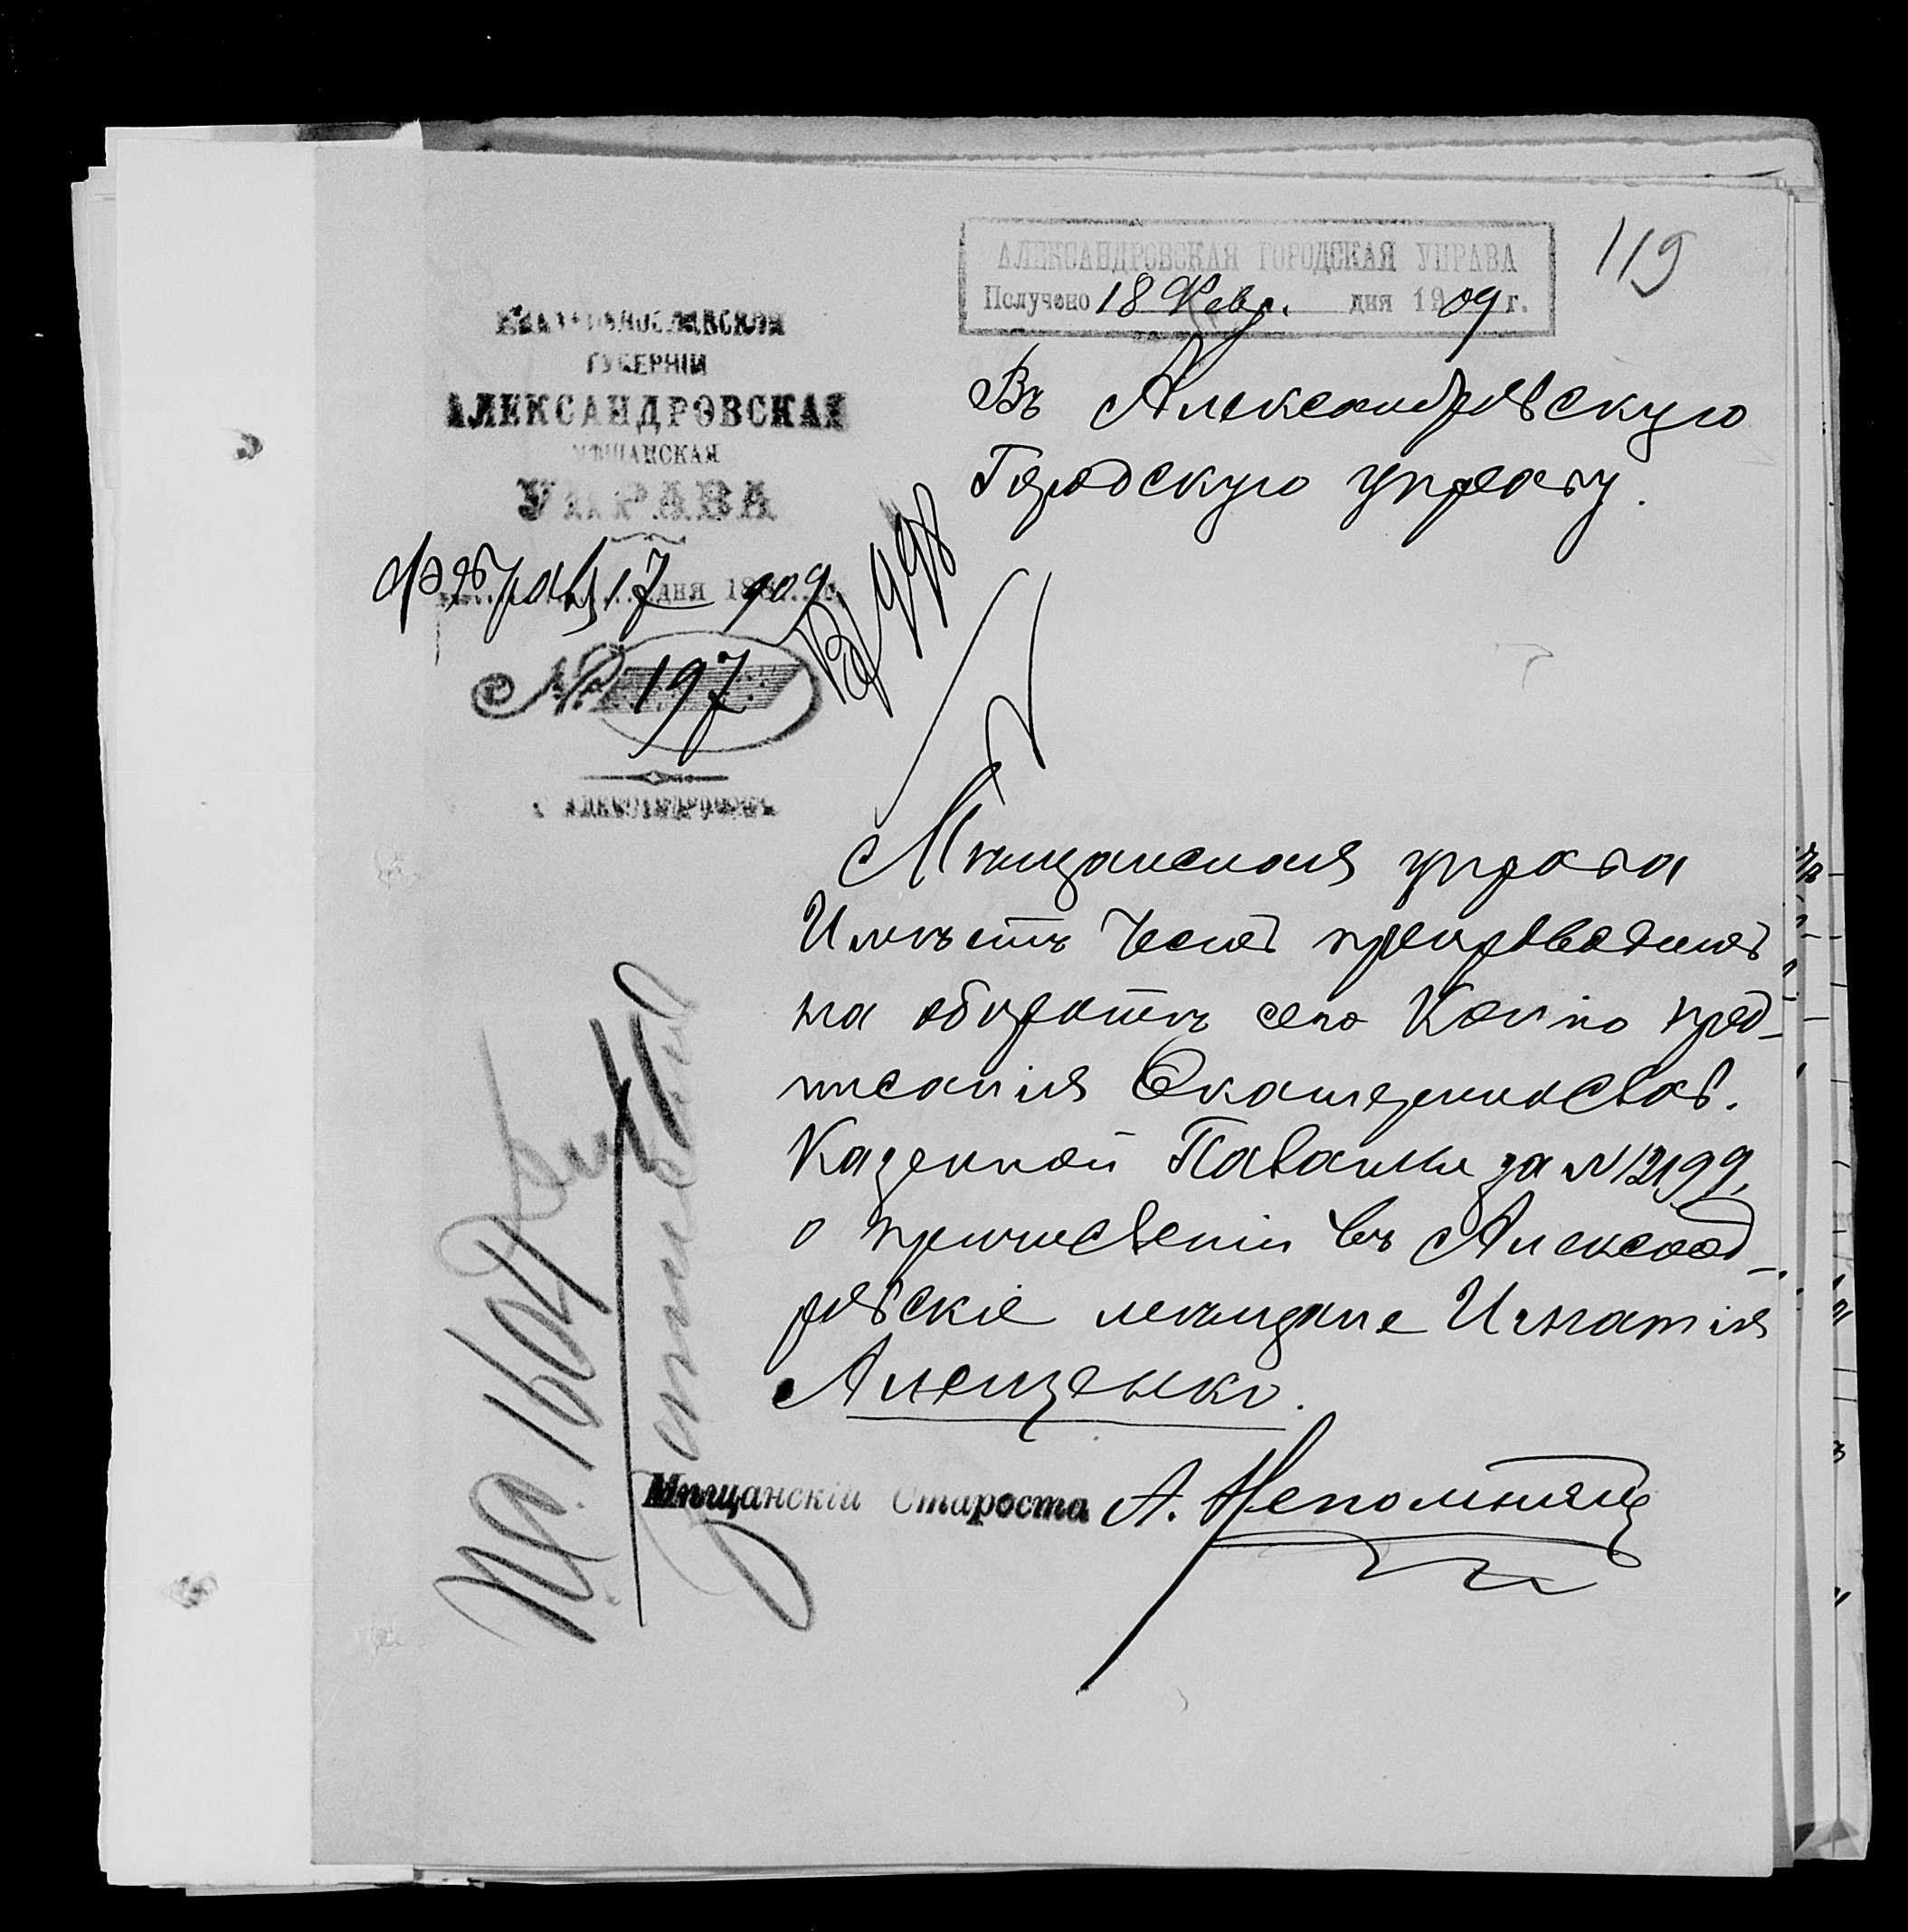 119
АЛЕКСАНДРОВСКАЯ ГОРОДСКАЯ УПРАВА
Получено 18 Февр. дня 1909 г.
ЕКАТЕРИНОСЛАВСКОЙ
ГУБЕРНІИ
АЛЕКСАНДРОВСКАЯ
МѢЩАНСКАЯ
УПРАВА
Февраля 17 дня 1909
№ 197
Г. АЛЕКСАНДРОВСКЪ
Въ Александровскую
Городскую управу.
Мѣщанская управа
Имѣетъ честь препроводить
на оборотѣ сего Копію пред-
писанія Екатеринослав.
Казенной Палаты за № 12199,
о причисленіи въ Александ-
ровскіе мещане Игнатія
Алещенко.
Мѣщанскій Староста А. Непомнящ